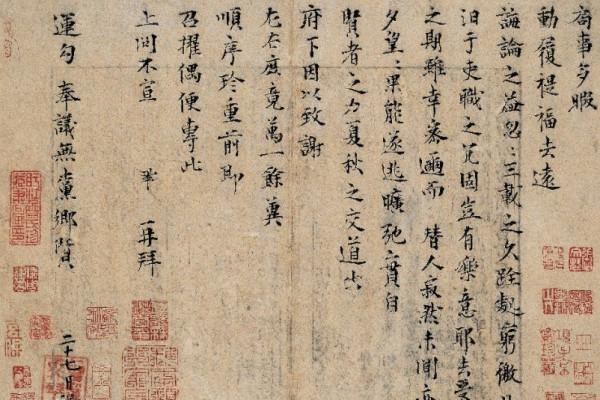 局事多暇
動履禔福去遠
誨論之益忽〻三載之久跧處窮徼
汨于吏職之冗固豈有樂意耶去受
之期雖幸密邇而 替人寂然未聞亦
夕望〻果能遂逃曠弛實自
賢者之力夏秋之交道出
府下因以致謝
左右庶竟萬一餘冀
順序珍重前即
召擢偶便專此
上問不宣 鞏 再拜
運勾 奉議無黨鄉賢 二十七日